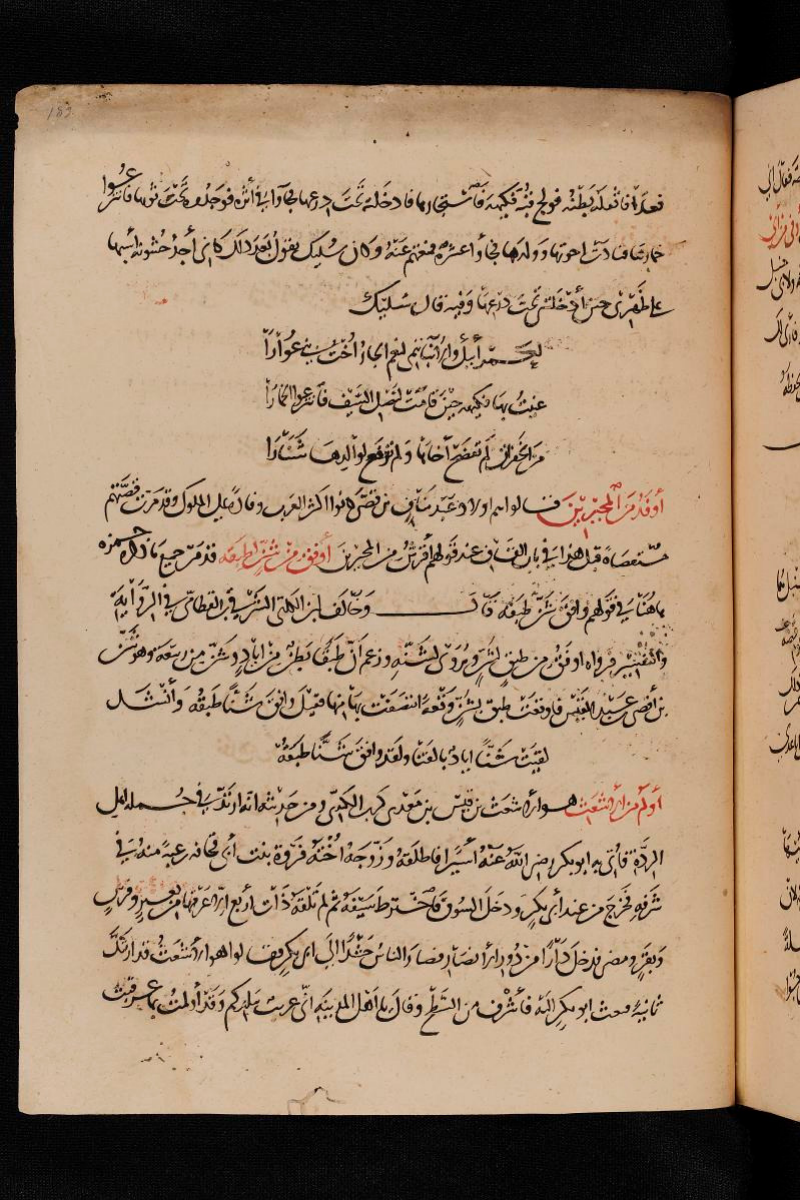 183
فعدا فاثقله بطنه فولج قبة فكيهة فاستجار بها فادخلته تحت درعها فجاوا في أثره فوجدوه تحت ثوبها فانتزعوا
خمارها فنادت اخوتها وولدها فجاوا عشرة فمنعتهم عنه وكان سليك يقول بعد ذلك كاني أجد خشونة
على ظهري حين أدخلتني تحت درعها وفيه قال سليك
لعمر أبيك والانباء تنمي لنعم الجار أخت بني عوارا
عنيت بها فكيهة حين قامت لنصل السيف فانتزعوا الخمارا
من الخفرات لم تفضح أخاها ولم ترفع لوالدها شنارا
أوفد من المجبرين قالوا هم اولاد عبد مناف بن قصي كانوا اكثر العرب وفادة على الملوك وقد مرت قصتهم
مستقصاة قبل هذا في باب القاف عند قولهم أقرش من المجبرين أوفق من شن لطبقة قد مر جميع ما ذكره حمزه
هاهنا في قولهم وافق شن طبقة قال وخالف ابن الكلبي الشرقي بن القطامي في الرواية
والتفسير فرواه اوفق من طبق لشن ويروى لشنه وزعم أن طبقا بطن من اياد وشن من ربيعة وهو شن
بن أفصى عبد القيس فاوقعت طبق بشن وقعة انتصفت بها منها فقيل وافق شنا طبقه وأنشد
لقيت شنا اياد بالقنا ولقد وافق شنا طبقه
أولم من الأشعث هو الأشعث بن قيس بن معدي كرب الكندي ومن حديثه انه ارتد في جملة اهل
الردة فأتي به ابو بكر رضي الله عنه أسيرا فاطلقه وزوجه أخته فروة بنت أبي قحافه رغبة منه في
شرفه فخرج من عند أبي بكر ودخل السوق فاخترط سيفه ثم لم تلقه ذات أربع الا عرقبها من بعير وفرس
وبقر ومضى فدخل دارا من دور الأنصار فصار الناس حشدا إلى ابي بكر فقالوا هو الأشعث قد ارتد
ثانية فبعث ابو بكر اليه فأشرف من السطح وقال يا أهل المدينة اني غريب ببلدكم وقد أولمت بما عرقبت